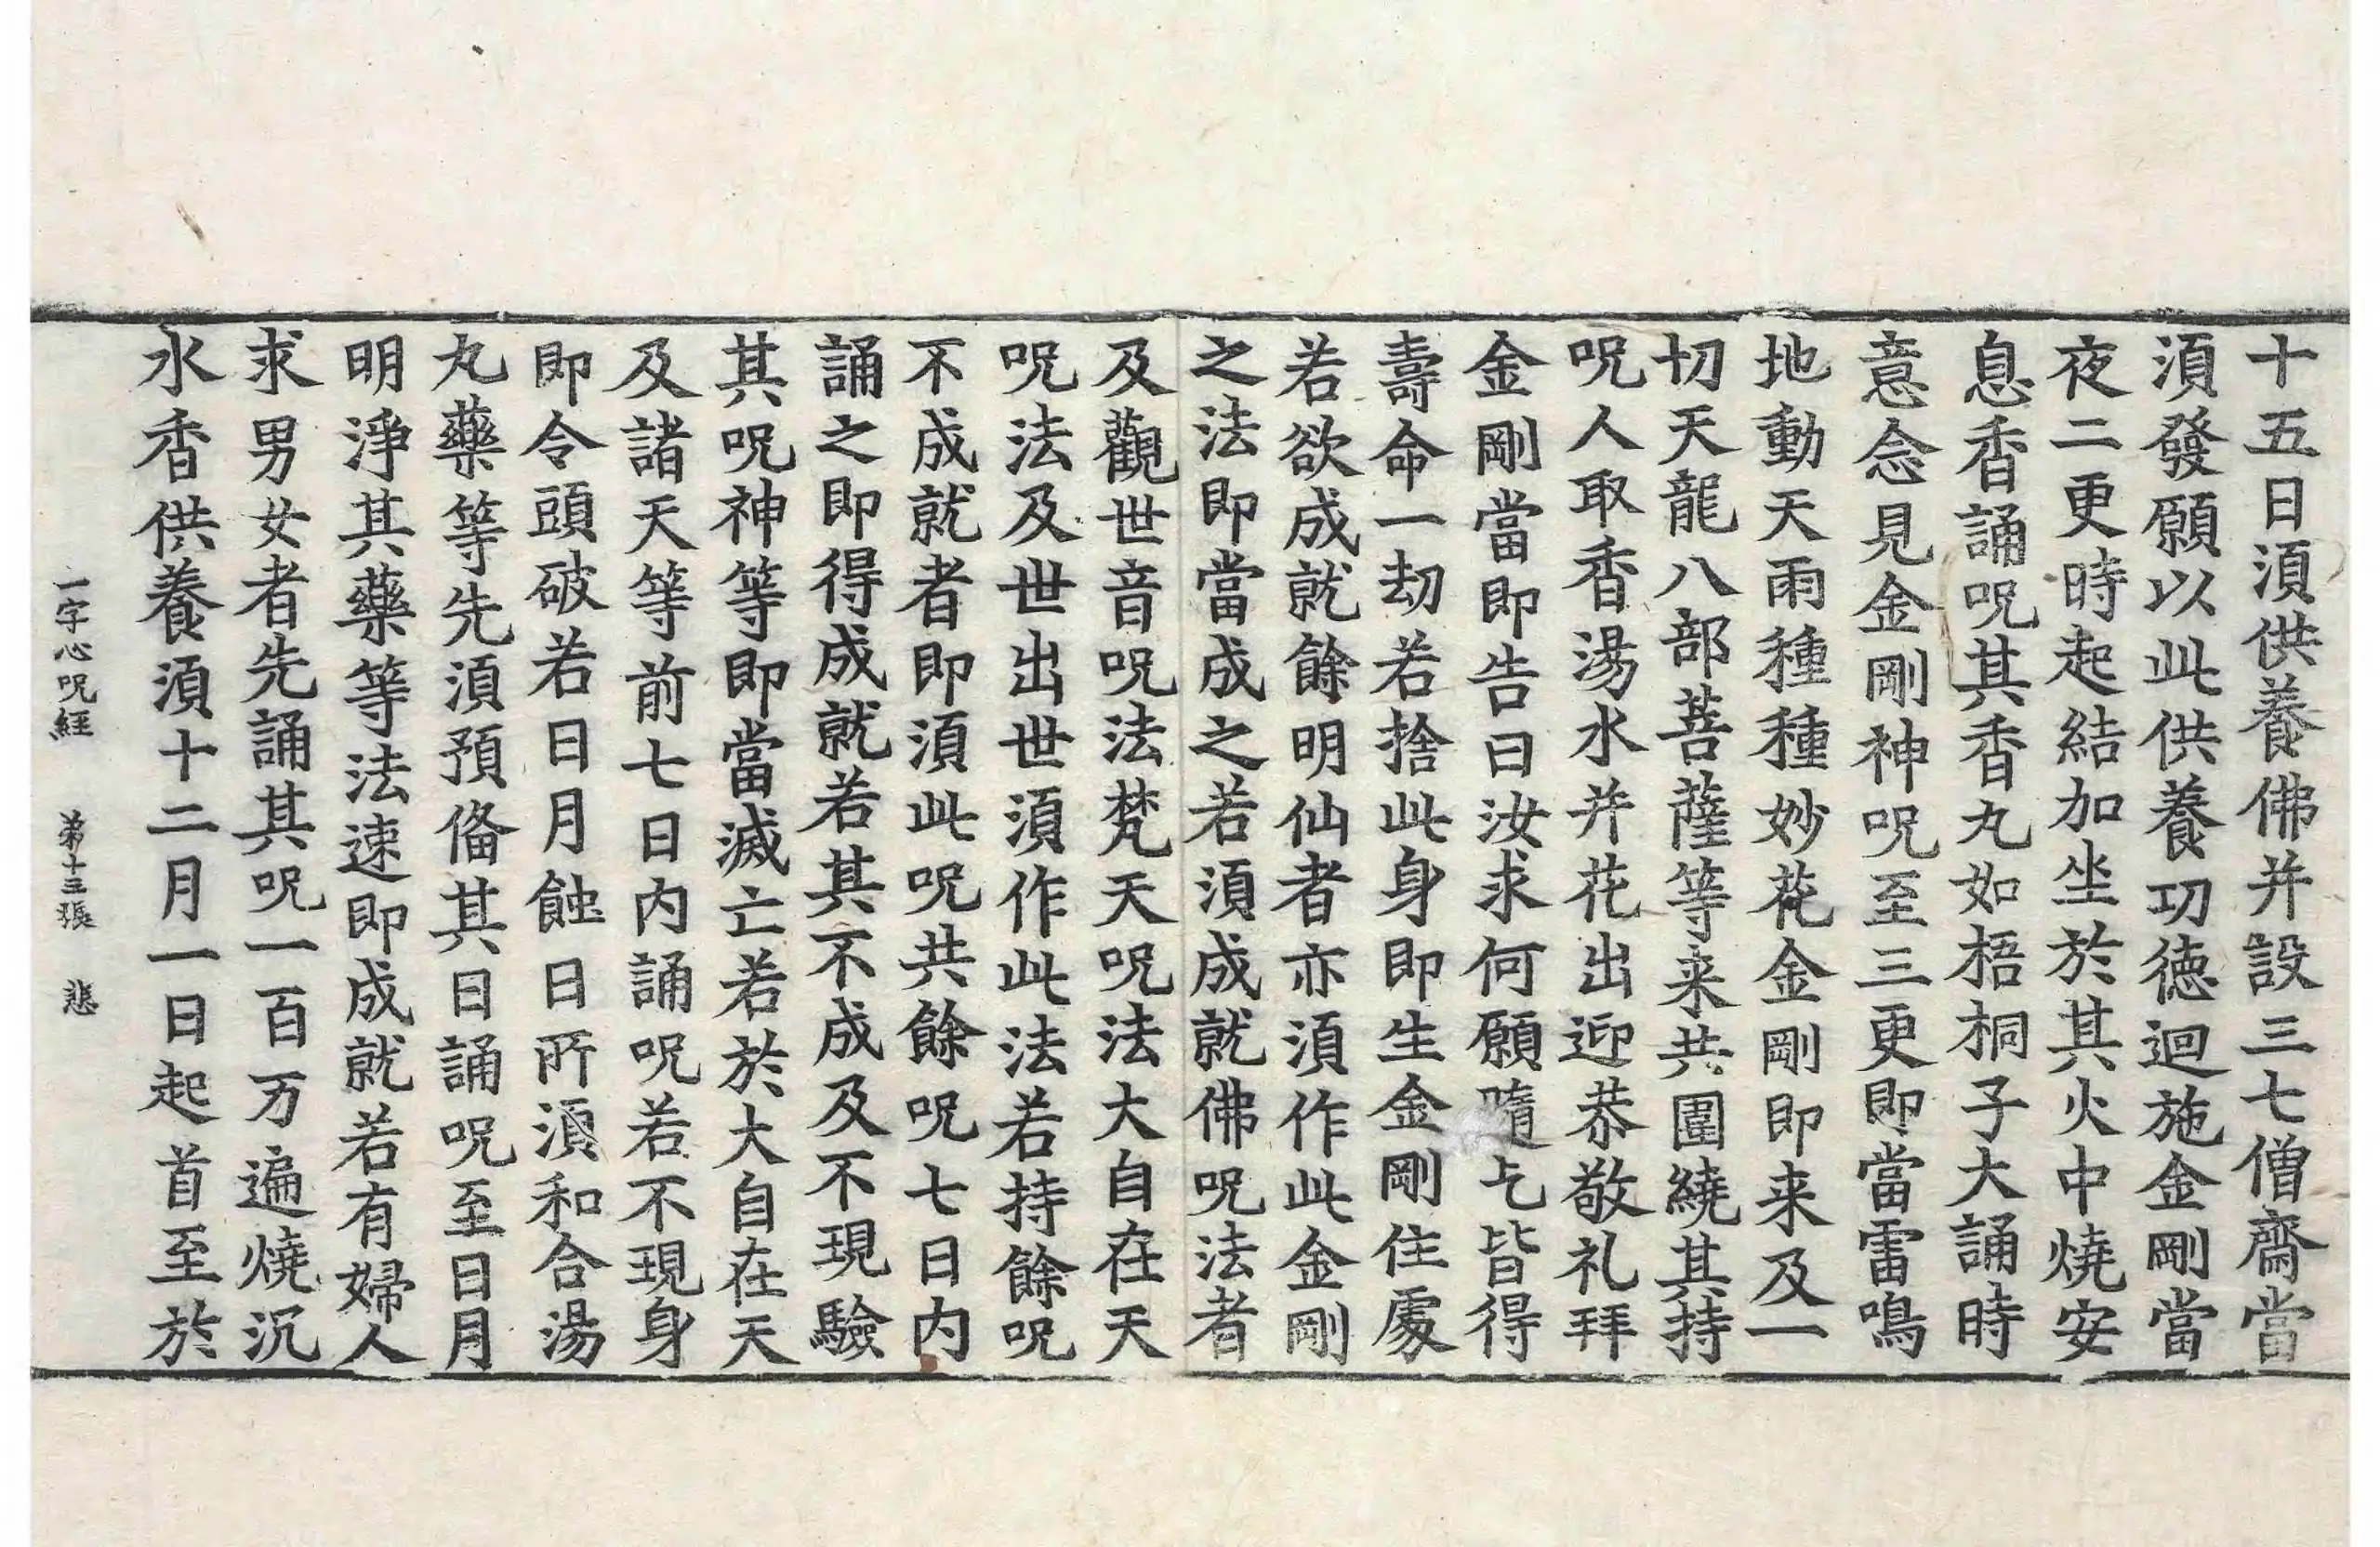 十五日湏供養佛并設三七僧齋當
湏發願以此供養功徳迴施金剛當
夜二更時起結加坐於其火中燒安
息香誦呪其香丸如梧桐子大誦時
意念見金剛神呪至三更即當雷鳴
地動天雨種種妙花金剛即来及一
切天龍八部菩薩等来共圍繞其持
呪人取香湯水并花出迎恭敬礼拜
金剛當即告曰汝求何願隨乞皆得
壽命一劫若捨此身即生金剛住處
若欲成就餘明仙者亦湏作此金剛
之法即當成之若湏成就佛呪法者
及觀世音呪法梵天呪法大自在天
呪法及世出世湏作此法若持餘呪
不成就者即湏此呪共餘呪七日内
誦之即得成就若其不成及不現驗
其呪神等即當滅亡若於大自在天
及諸天等前七日内誦呪若不現身
即令頭破若日月蝕日所湏和合湯
丸藥等先湏預俻其日誦呪至日月
明淨其藥等法速即成就若有婦人
求男女者先誦其呪一百万遍燒沉
水香供養湏十二月一日起首至於
一字心呪經 苐十三張 悲